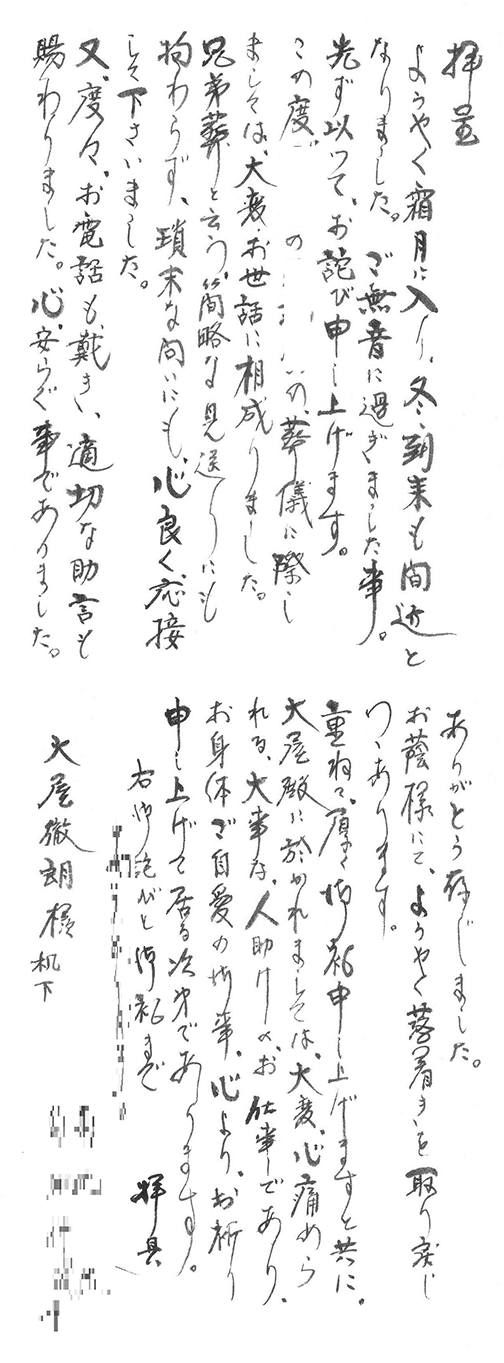 拝呈
ようやく霜月に入り、冬、到来も間近と
なりました。ご無音に過ぎました事。
先ず以って、お詫び申し上げます。
この度 の の、葬儀に際し
ましては、大変、お世話に相成りました。
兄弟葬と云う、簡略な見送りにも
拘わらず、瑣末な問いにも、心良く、応接
して下さいました。
又、度々、お電話も、戴き、適切な助言も
賜わりました。心、安らぐ事でありました。
ありがとう存じました。
お蔭様にて、ようやく落着きを取り戻し
つつあります。
重ねて、厚く御礼申し上げますと共に、
大屋殿に於かれましては、大変、心痛めら
れる、大事な、人助けの、お仕事であり、
お身体ご自愛の御事、心より、お祈り
申し上げて居る次第であります。
右御詫びと御礼まで
拝具
大屋徹朗様 机下